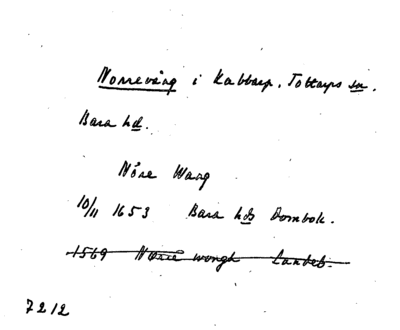 Norrevång i Kabbarp, Tottarps sn.
Bara hd.
Nöre Wang
10/11 1653 Bara hds Dombok.
1569 Nørre wongh Landeb.
7212